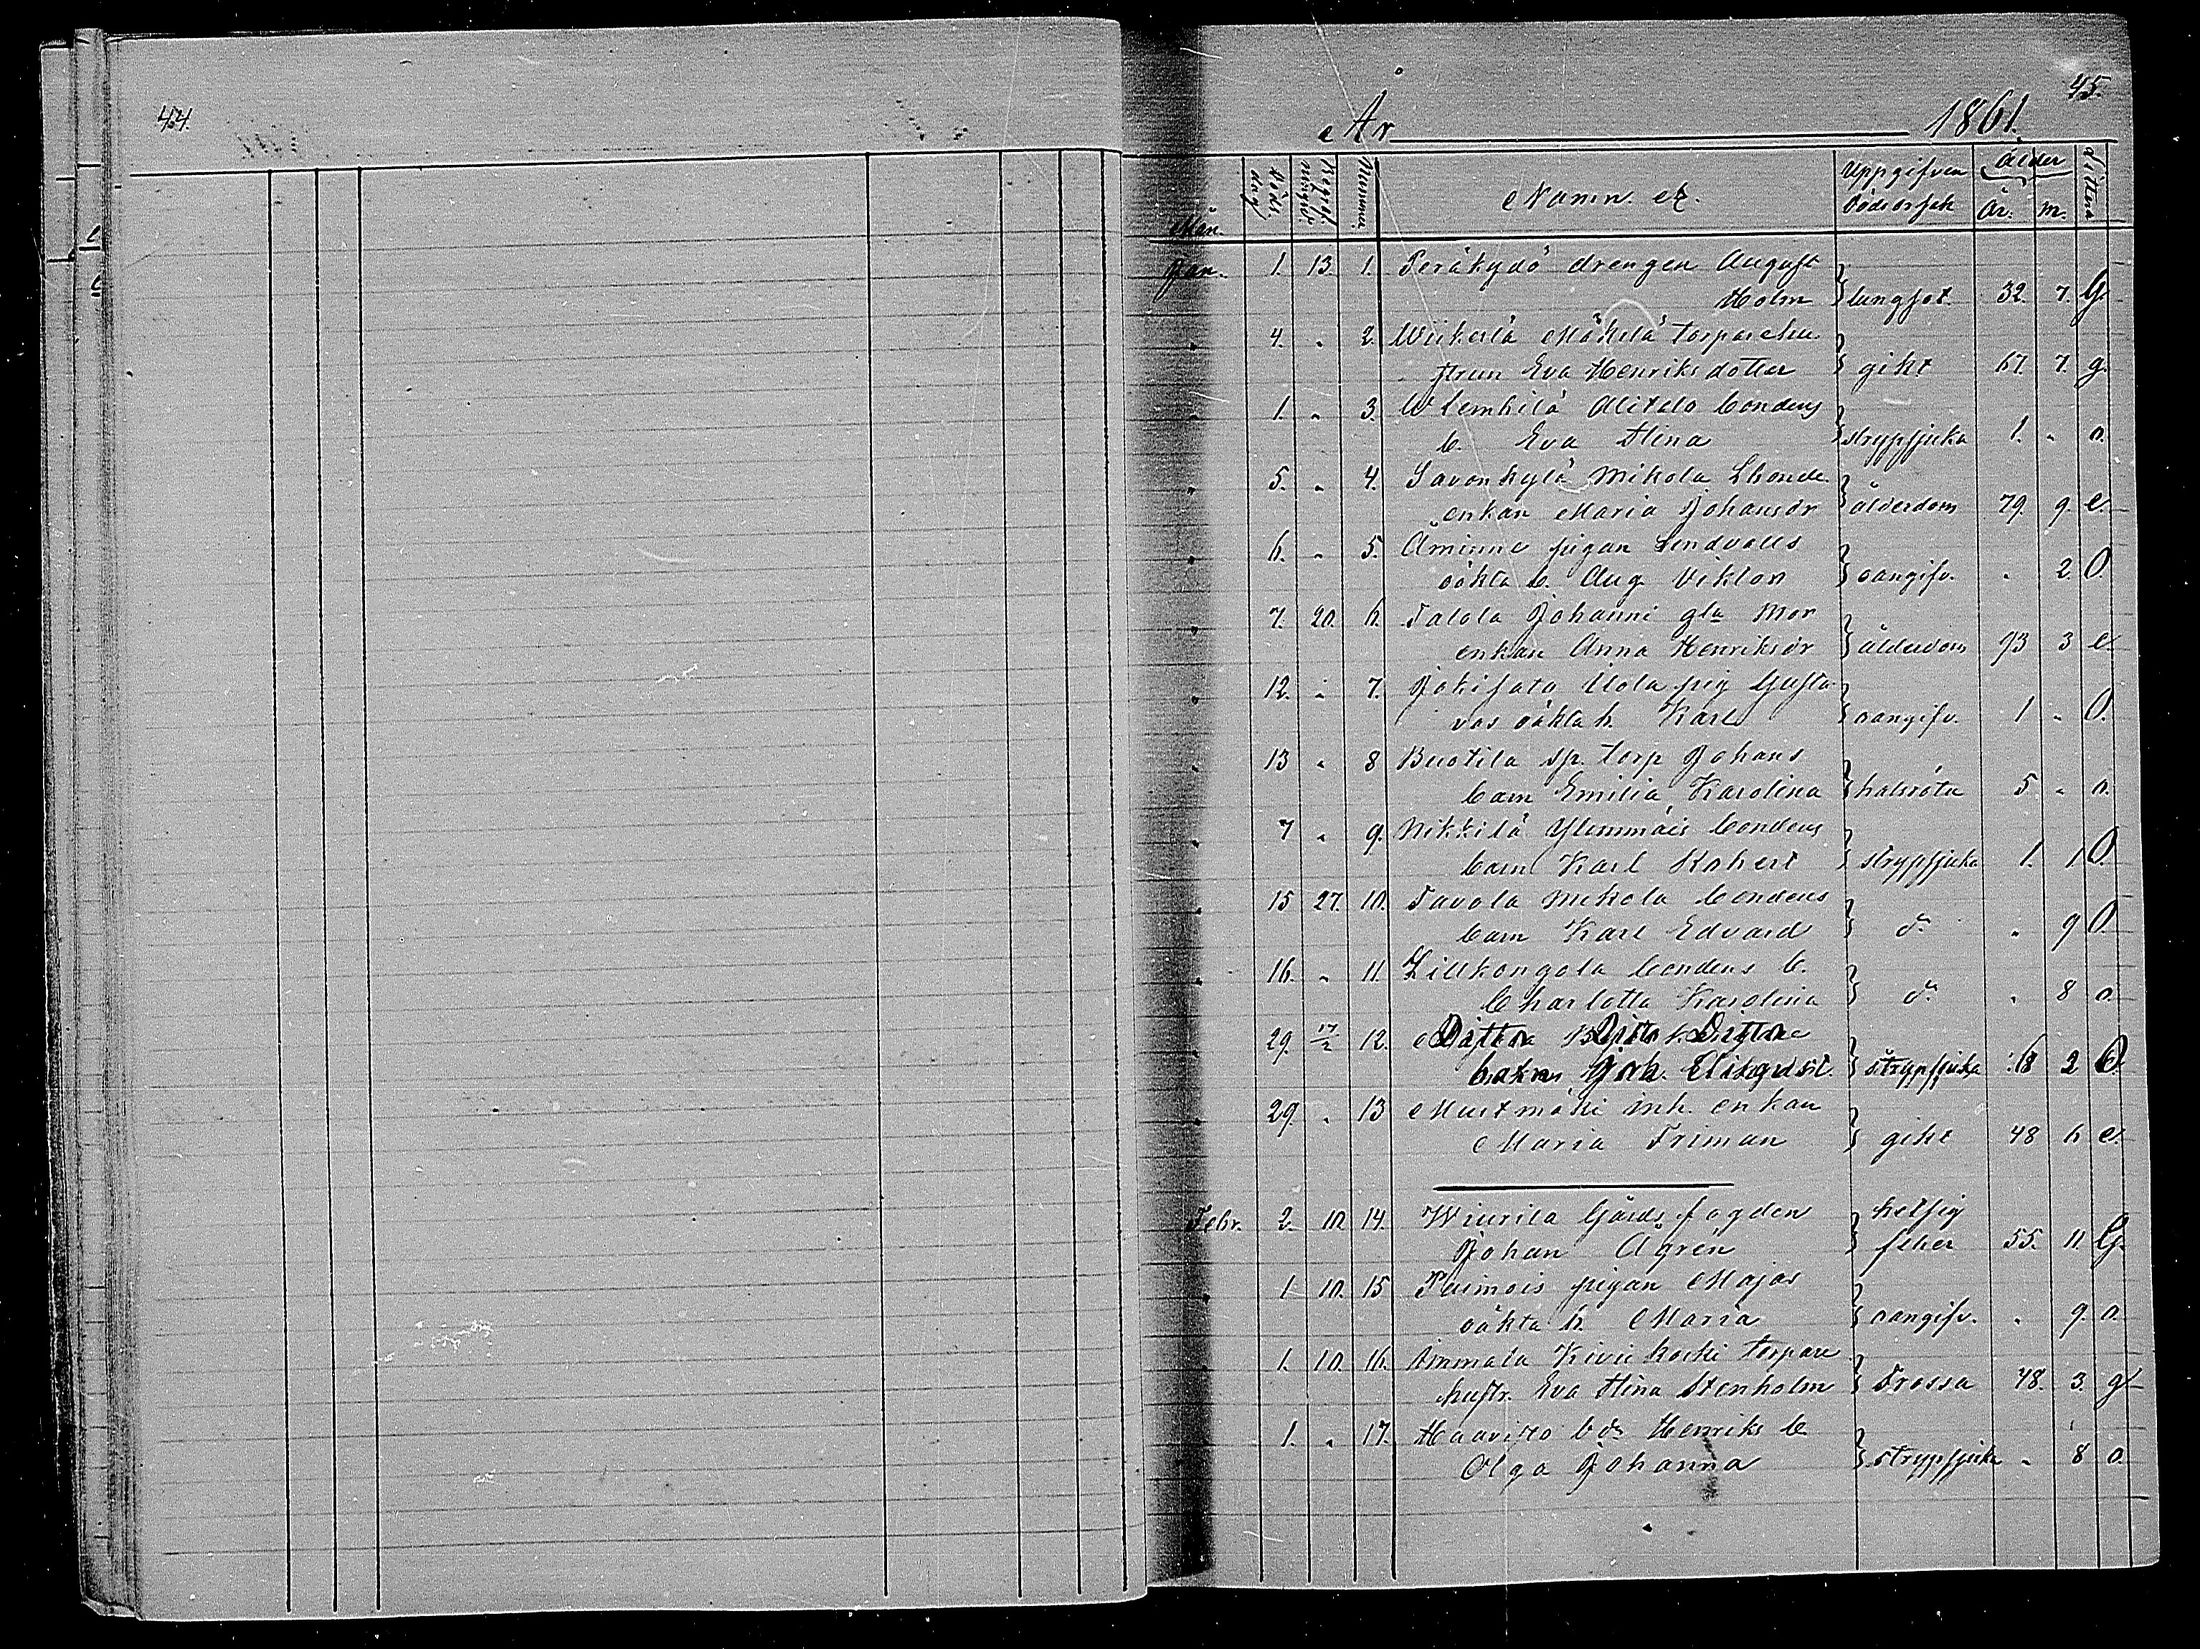 44.
45.
År 1861.
Mån.
Döds. dag
Begraf.
Nummer.
Namn. etc.
Uppgifven dödsorsak
Ålder
År. M.
Littera
Jan. 1. 13. 1. Peräkydö drengen August
Holm lungsot. 32. 7. G.
" 4. " 2. Mäkelä torpare hu
strun Eva Henriksdotter gikt 67. 7. g.
" 1. " 3. Alitalo bondens
b. Eva Stina strypsjuka 1. " o.
" 5. " 4. Savonkylä Mikola
enkan Maria Johansdr ålderdom 79. 9. e.
" 6. " 5. Åminne pigan Lindvalls
oäkta b. Aug. Viktor oangifv. " 2. O.
" 7. 20. 6. Talola Johanni gla Mor
enkan Anna Henriksdr ålderdom 93 3 e.
" 12. " 7. Jokisata Uola pig Gusta
vas oäkta b. Karl oangifv. 1 " O.
" 13 " 8 Buotila sp. torp Johans
barn Emilia Karolina halsröta 5 " o.
" 7 " 9. Nikkilä Ylimmäis bondens
barn Karl Robert strypsjuka 1. 1 O.
" 15 27. 10. Tavola Mikola bondens
barn Karl Edvard do " 9 O.
" 16. " 11. Lillkongola bondens b.
Charlotta Karolina do " 8 o.
" 29. 17/2 12.
strypsjuka 2 O.
" 29. " 13 Mustmäki inh. enkan
Maria Friman gikt 48 6 e.
Febr. 2. 10 14. Wiurila Gårds fogden
Johan Ågren hetsig feber 55. 11. G.
" 1 10. 15 Paimois pigan Majas
oäkta b. Maria oangifv. " 9. o.
1. 10. 16. Ammala torpare
hustr. Eva Stina Stenholm Frossa 48. 3. g
1. " 17. Haavisto bds Henriks b.
Olga Johanna strypsjuka " 8 o.